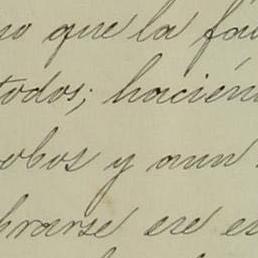 no que la fá
todos; hacién
obos y aun
brarse en es